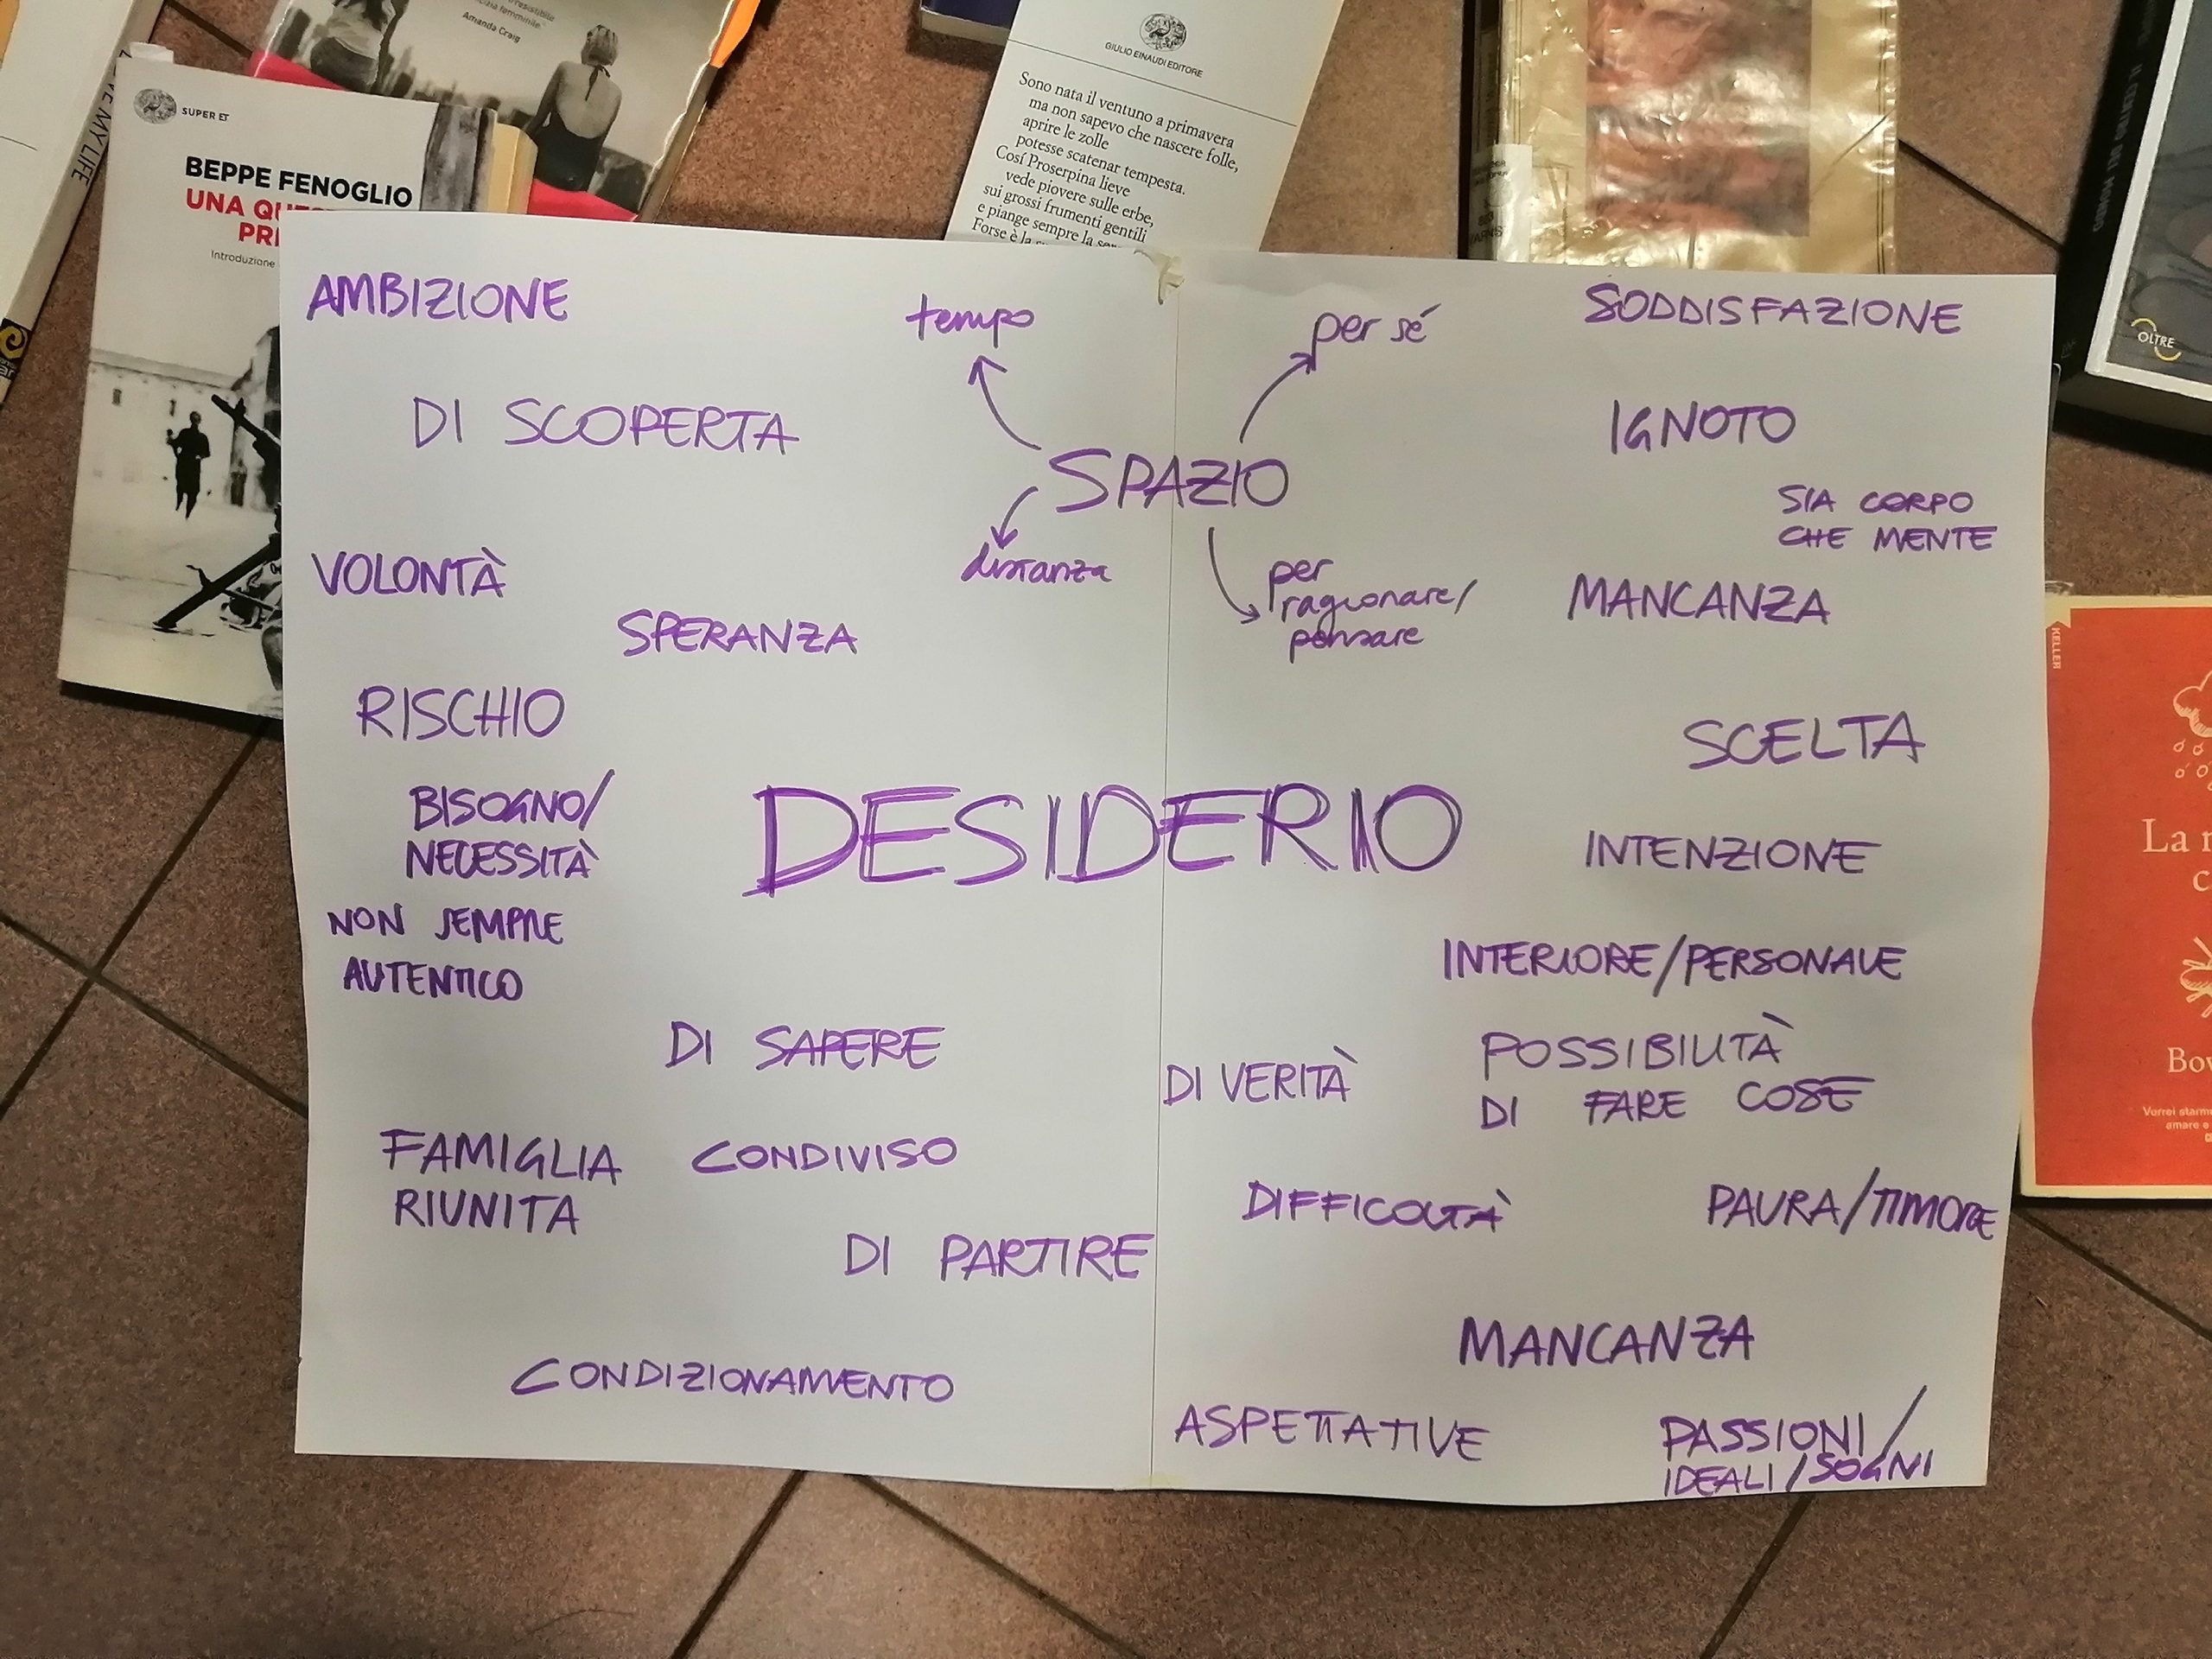 Amanda Craig
SUPER ET
BEPPE FENOGLIO
Introduzione
GIULIO EINAUDI EDITORE
Sono nata il ventuno a primavera
ma non sapevo che nascere folle,
aprire le zolle
potesse scatenar tempesta.
Cosí Proserpina lieve
vede piovere sulle erbe,
sui grossi frumenti gentili
e piange sempre la
Forse è la
OLTRE
KELLER
La
AMBIZIONE
tempo
per sé
SODDISFAZIONE
DI SCOPERTA
SPAZIO
IGNOTO
SIA CORPO
CHE MENTE
VOLONTÀ
distanza
per
ragionare/
pensare
MANCANZA
SPERANZA
RISCHIO
SCELTA
BISOGNO/
NECESSITÀ
DESIDERIO
INTENZIONE
NON SEMPRE
AUTENTICO
INTERIORE/PERSONALE
DI SAPERE
DI VERITÀ
POSSIBILITÀ
DI FARE COSE
FAMIGLIA
RIUNITA
CONDIVISO
DIFFICOLTÀ
PAURA/TIMORE
DI PARTIRE
MANCANZA
CONDIZIONAMENTO
ASPETTATIVE
PASSIONI/
IDEALI/SOGNI